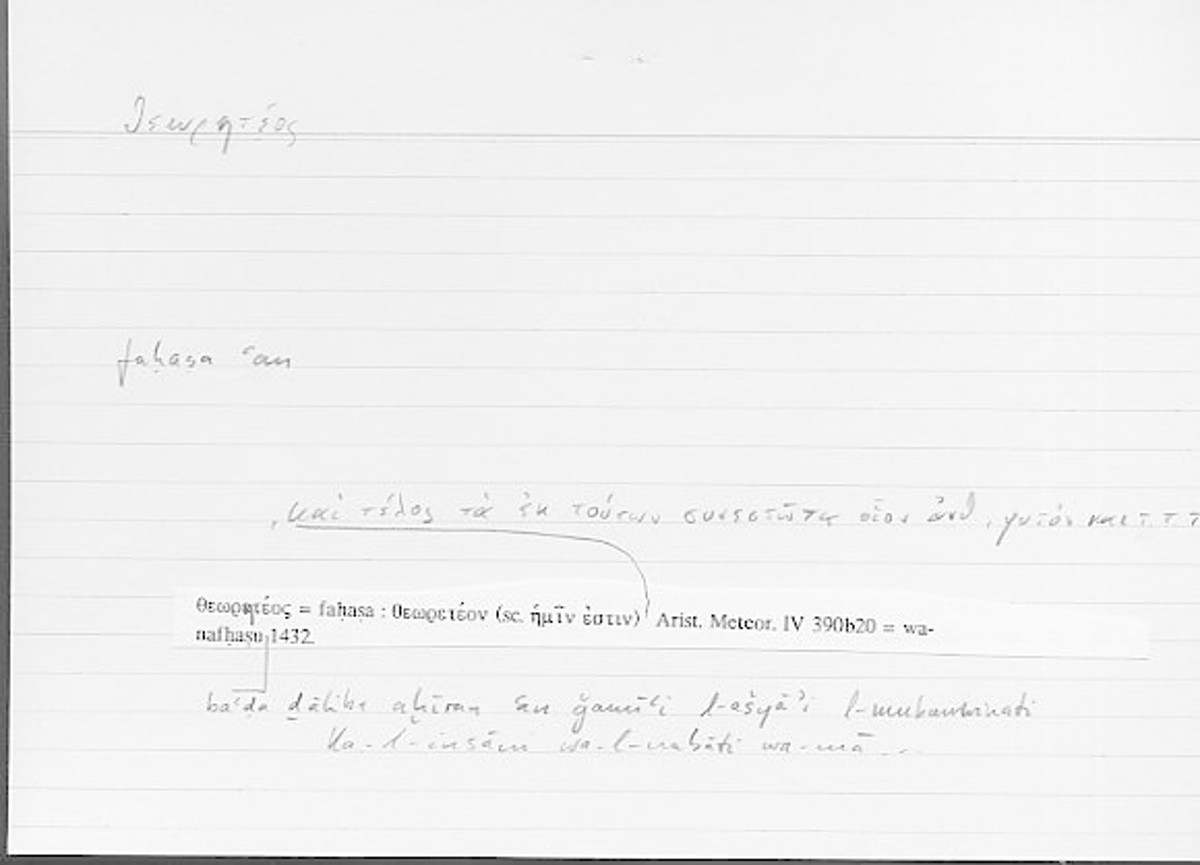 θεωρητέος
faḥaṣa ʿan
, καὶ τέλος τὰ ἐκ τούτων συνεστῶτα οἷον ἄνθ, φυτόν καὶ τ. τ. τ
θεωρητέος = faḥaṣa : θεωρετέον (sc. ἡμῖν ἐστιν) Arist. Meteor. IV 390b20 = wa-
nafḥaṣu 1432.
baʿda ḏālika aḫīran ʿan ǧamīʿi l-ašyāʾi l-mukawwanati
ka-l-insāni wa-l-nabāti wa-mā ...